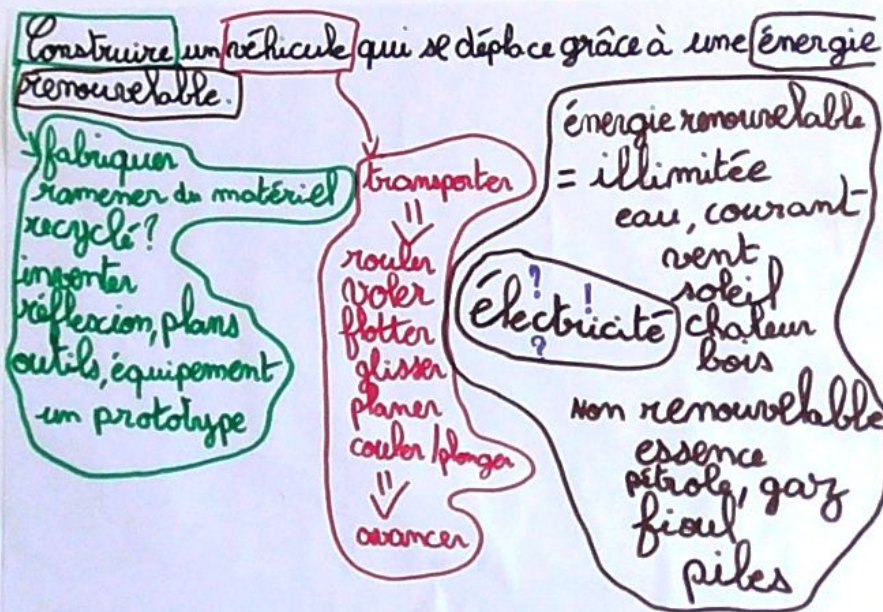 Construire un véhicule qui se déplace grâce à une énergie
renouvelable.
fabriquer
ramener du matériel
recyclé?
inventer
réflexion, plans
outils, équipement
un prototype
transporter
rouler
voler
flotter
glisser
planer
couler/plonger
avancer
énergie renouvelable
= illimitée
eau, courant
vent
soleil
chaleur
bois
? !
électricité
?
Non renouvelable
essence
pétrole, gaz
fioul
piles